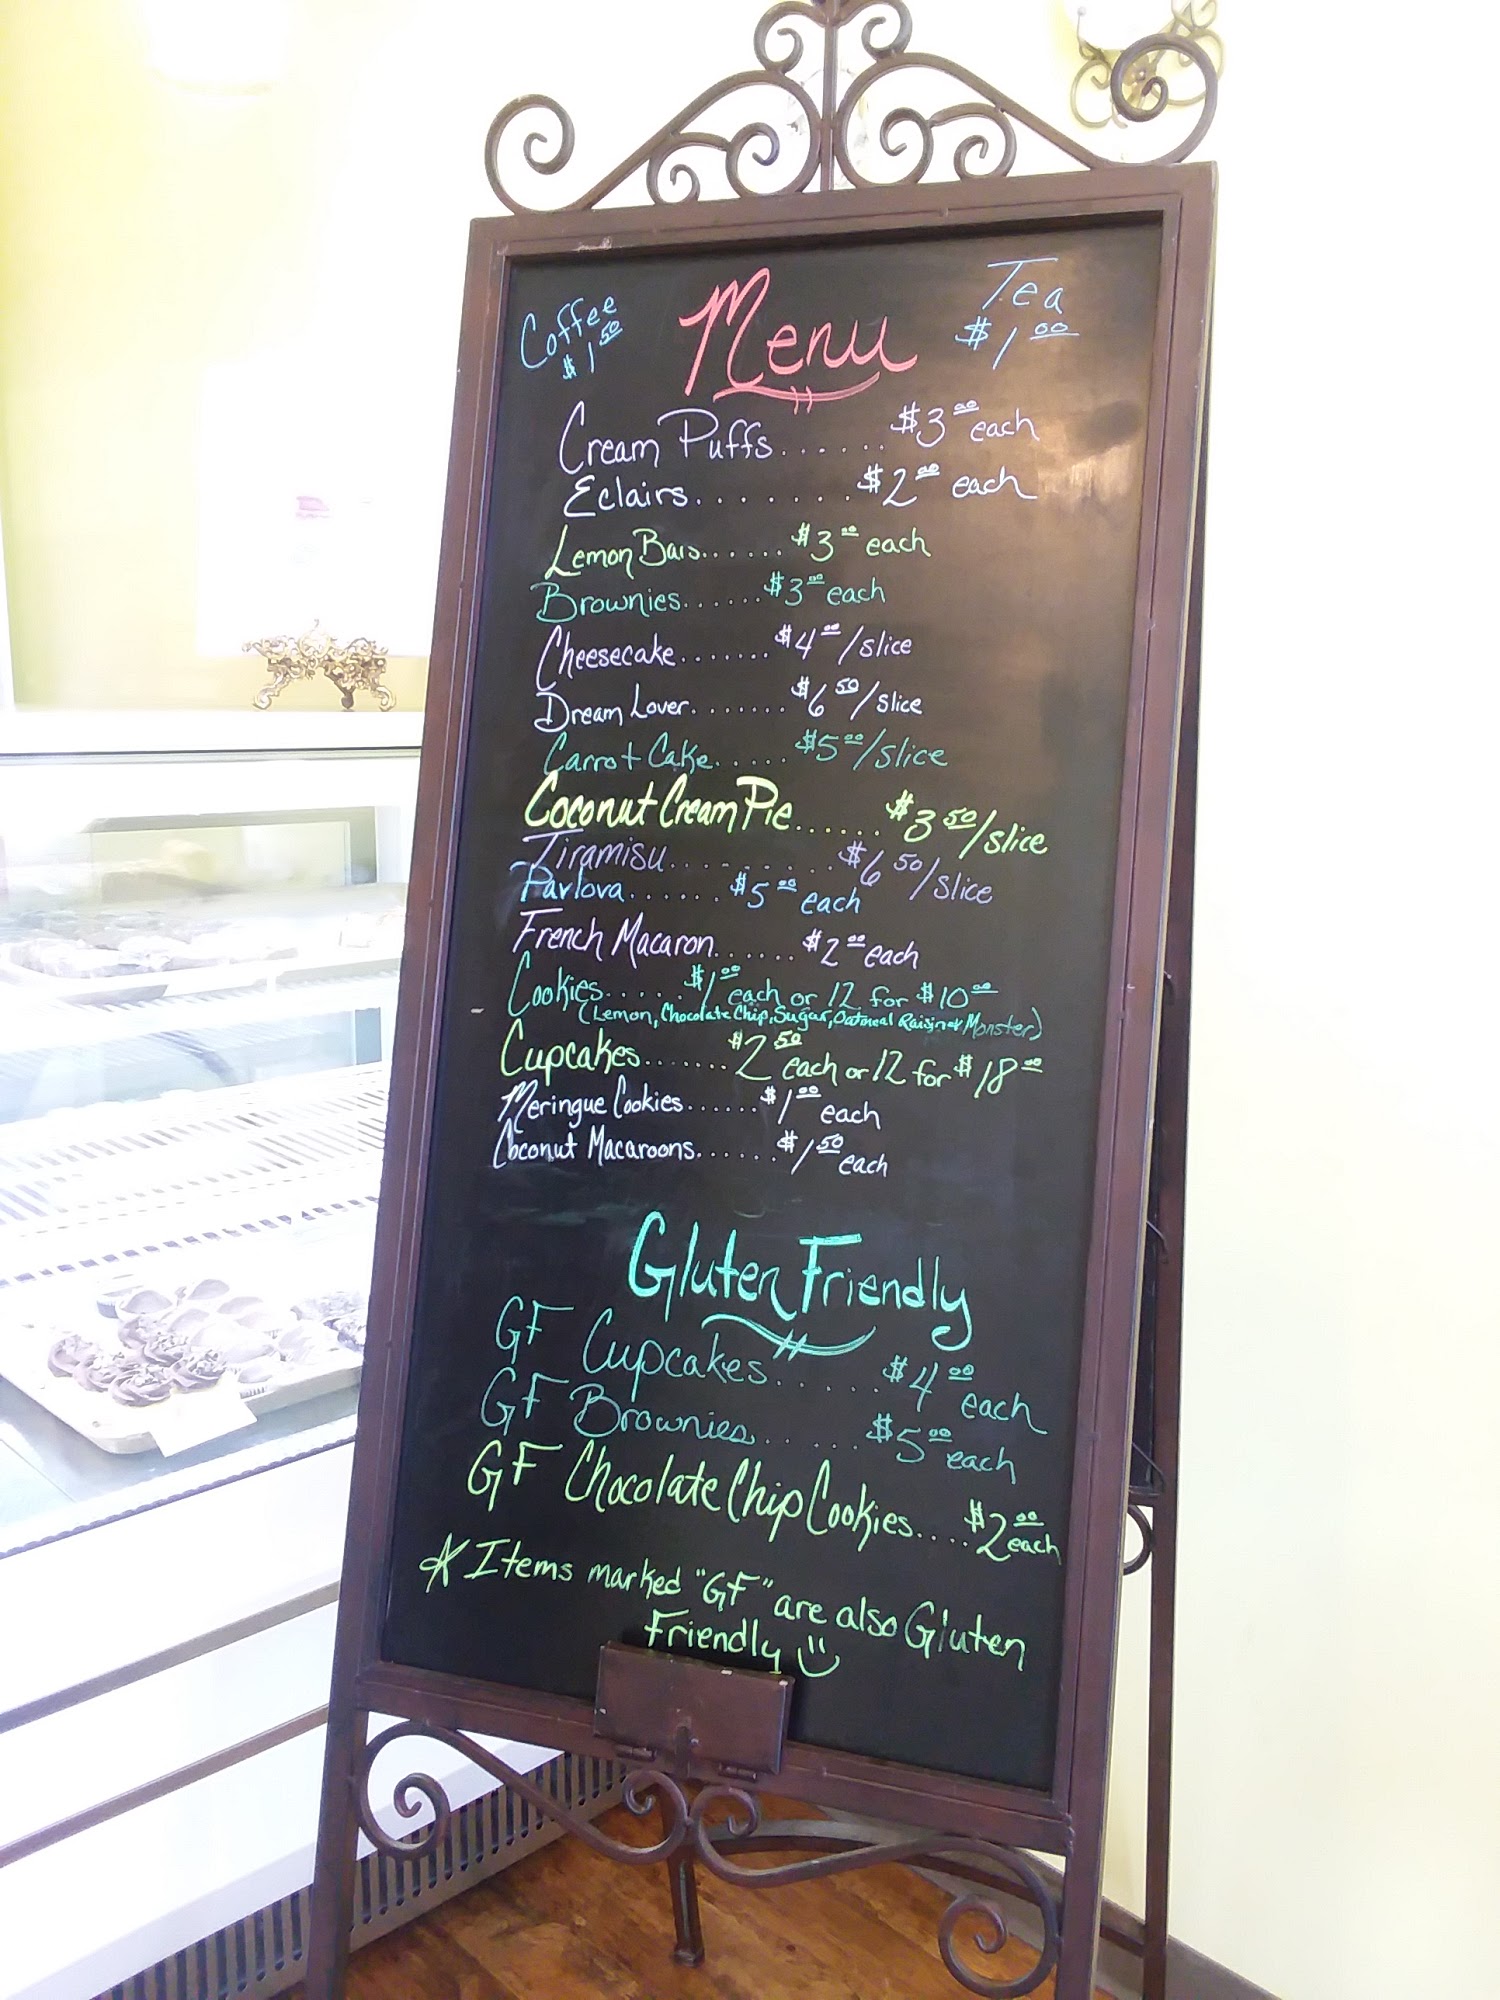 Menu
Coffee
$1.50
Tea
$1.00
Cream Puffs...... $3.00 each
Eclairs........ $2.00 each
Lemon Bars...... $3.00 each
Brownies...... $3.00 each
Cheesecake....... $4.00/slice
Dream Lover....... $6.50/slice
Carrot Cake..... $5.00/slice
Coconut Cream Pie...... $3.50/slice
Tiramisu......... $6.50/slice
Pavlova...... $5.00 each
French Macaron...... $2.00 each
Cookies..... $1.00 each or 12 for $10.00
(Lemon, Chocolate Chip, Sugar, Oatmeal Raisin or Monster)
Cupcakes....... $2.50 each or 12 for $18.00
Meringue Cookies...... $1.00 each
Coconut Macaroons...... $1.50 each
Gluten Friendly
GF Cupcakes...... $4.00 each
GF Brownies...... $5.00 each
GF Chocolate Chip Cookies.... $2.00 each
* Items marked "GF" are also Gluten
Friendly